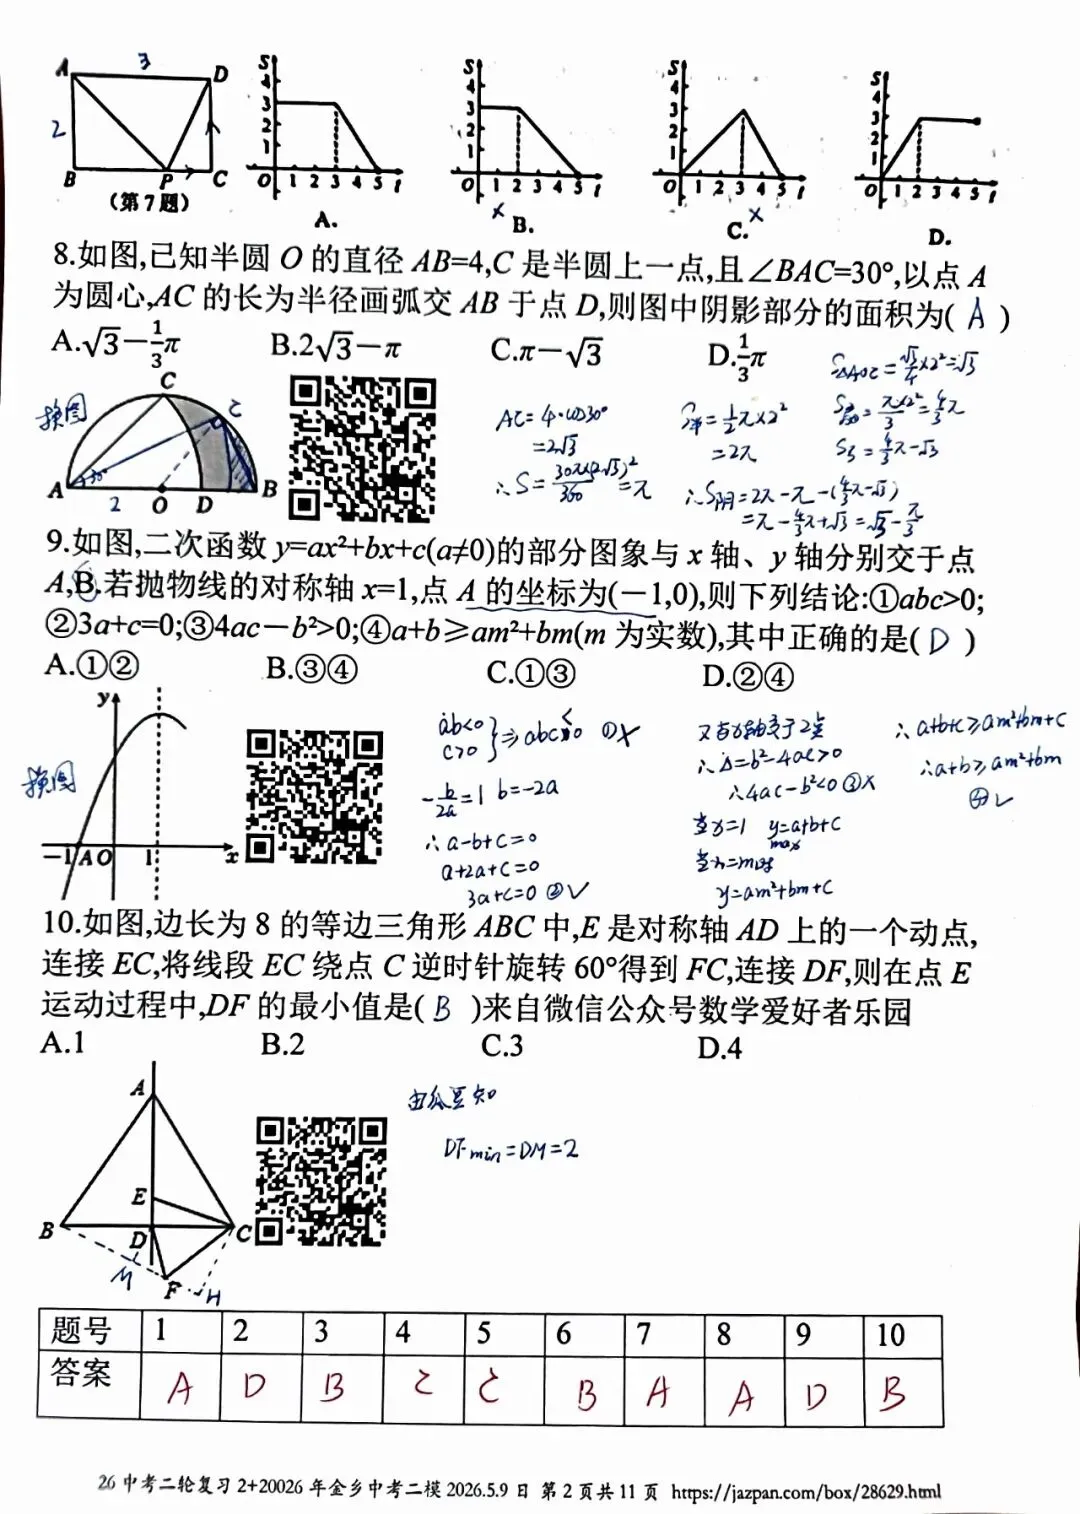 A 3 D
2
B P C
(第7题)
S 4 3 2 1 O 1 2 3 4 5 t
A.
S 4 3 2 1 O 1 2 3 4 5 t
× B.
S 4 3 2 1 O 1 2 3 4 5 t
C. ×
S 4 3 2 1 O 1 2 3 4 5 t
D.
8.如图,已知半圆 O 的直径 AB=4,C 是半圆上一点,且∠BAC=30°,以点 A
为圆心,AC 的长为半径画弧交 AB 于点 D,则图中阴影部分的面积为( A )
A.√3－1/3π B.2√3－π C.π－√3 D.1/3π
换图
C
C
30°
A 2 O D B
AC=4·cos30°
=2√3
∴S=30π×(2√3)²/360=π
S半=1/2π×2²
=2π
S△AOC=√3/4×2²=√3
S扇=π×2²/3=4/3π
S弓=4/3π-√3
∴S阴=2π-π-(4/3π-√3)
=π-4/3π+√3=√3-π/3
9.如图,二次函数 y=ax²+bx+c(a≠0)的部分图象与 x 轴、y 轴分别交于点
A,B.若抛物线的对称轴 x=1,点 A 的坐标为(－1,0),则下列结论:①abc>0;
②3a+c=0;③4ac－b²>0;④a+b≥am²+bm(m 为实数),其中正确的是( D )
A.①② B.③④ C.①③ D.②④
换图
y
－1 A O 1 x
ab<0
c>0 }⇒abc<0 ①×
-b/2a=1 b=-2a
∴a-b+c=0
a+2a+c=0
3a+c=0 ②✓
又与x轴交于2点
∴Δ=b²-4ac>0
∴4ac-b²<0 ③×
当x=1 y max=a+b+c
当x=m时
y=am²+bm+c
∴a+b+c≥am²+bm+c
∴a+b≥am²+bm
④✓
10.如图,边长为 8 的等边三角形 ABC 中,E 是对称轴 AD 上的一个动点,
连接 EC,将线段 EC 绕点 C 逆时针旋转 60°得到 FC,连接 DF,则在点 E
运动过程中,DF 的最小值是( B )来自微信公众号数学爱好者乐园
A.1 B.2 C.3 D.4
A
E
B D C
M F H
由瓜豆知
DFmin=DM=2
题号 1 2 3 4 5 6 7 8 9 10
答案 A D B C C B A A D B
26 中考二轮复习 2+20026 年金乡中考二模 2026.5.9 日 第 2 页共 11 页 https://jazpan.com/box/28629.html